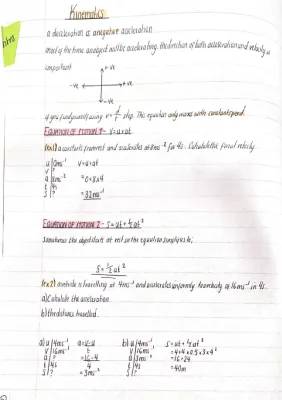 Kinematics
a deceleration is a negative acceleration
most of the time an object will be accelerating. the direction of both acceleration and velocity is
important
+ve
-ve +ve
-ve
if you find yourself using v = d/t stop. This equation only works with constant speed.
EQUATION OF MOTION 1 - v = u + at
(ex1) a car starts from rest and accelerates at 8ms⁻² for 4s. Calculate the final velocity.
u | 0ms⁻¹ v = u + at
v | ?
a | 8ms⁻² = 0 + 8 x 4
t | 4s
s | ? = 32ms⁻¹
EQUATION OF MOTION 2 - s = ut + ½at²
Sometimes the object starts at rest so the equation simplifies to;
s = ½at²
(ex2) a vehicle is travelling at 4ms⁻¹ and accelerates uniformly to a velocity of 16ms⁻¹ in 4s.
a) Calculate the acceleration
b) the distance travelled.
a) u | 4ms⁻¹ a = v - u b) u | 4ms⁻¹ s = ut + ½at²
v | 16ms⁻¹ t v | 16ms⁻¹ = 4 x 4 + 0.5 x 3 x 4²
a | ? = 16 - 4 a | 3ms⁻² = 16 + 24
t | 4s 4 t | 4s = 40m
s | ? = 3ms⁻² s | ?